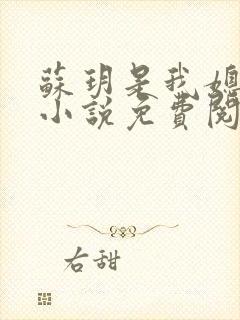 蘇玥是我媳
小說免費閱
右甜